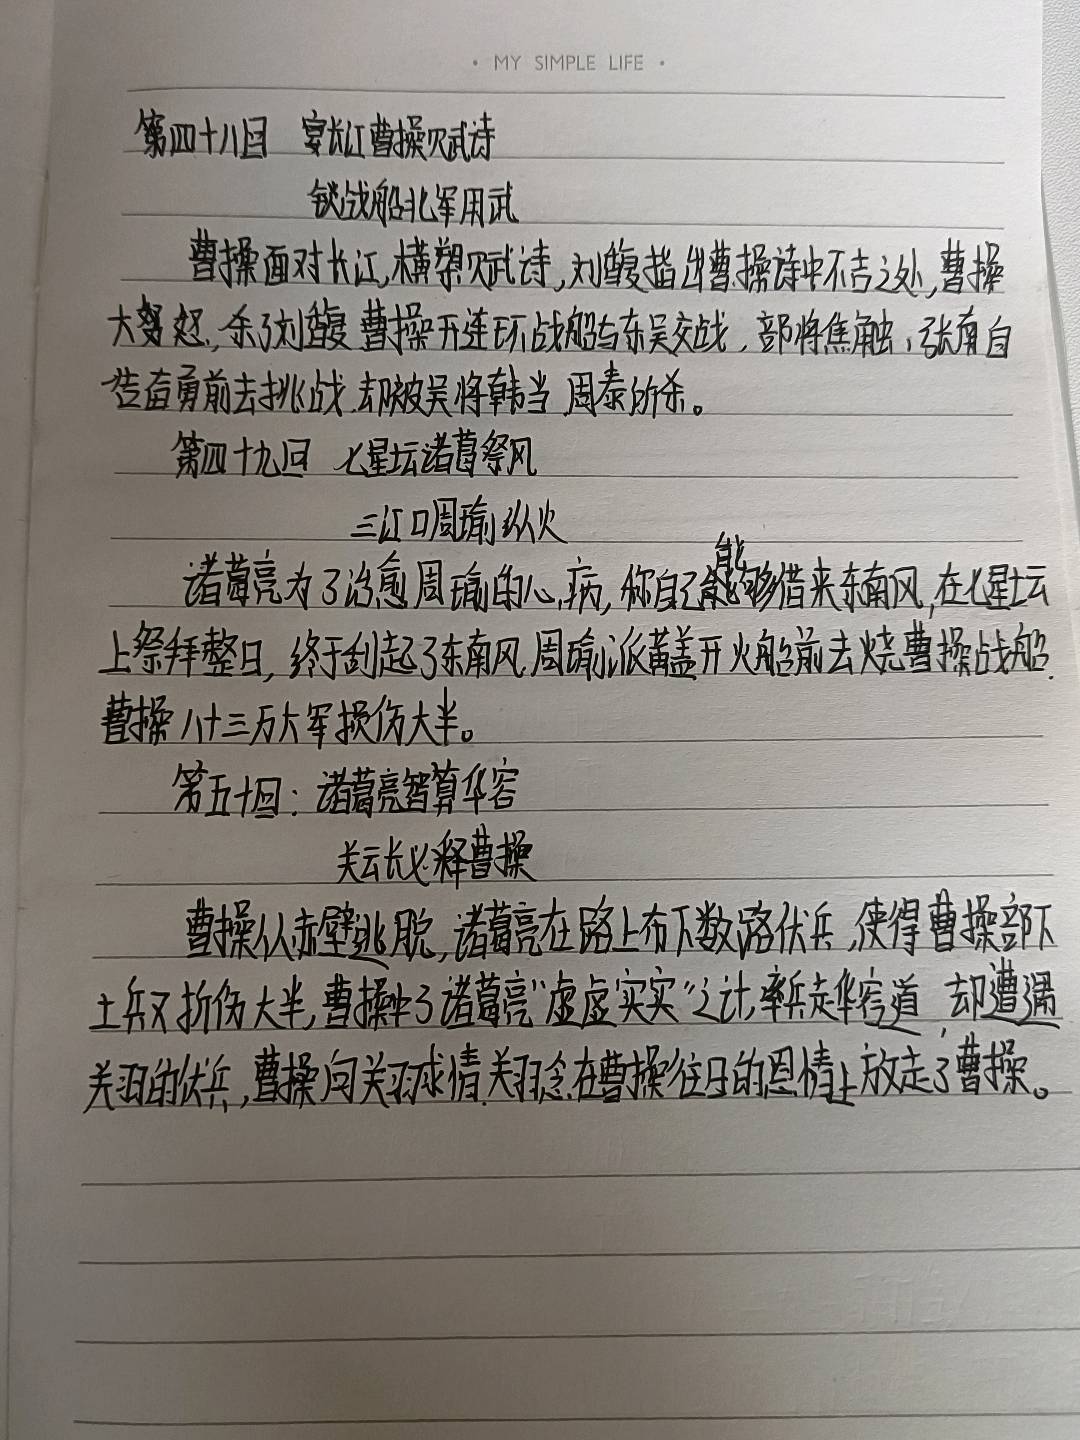 • MY SIMPLE LIFE •
第四十八回 宴长江曹操赋诗
锁战船北军用武
曹操面对长江,横槊赋诗,刘馥指出曹操诗中不吉之处,曹操
大怒,杀了刘馥 曹操开连环战船与东吴交战,部将焦触、张南自
告奋勇前去挑战,却被吴将韩当 周泰所杀。
第四十九回 七星坛诸葛祭风
三江口周瑜纵火
诸葛亮为了治愈周瑜的心病,称自己能够借来东南风,在七星坛
上祭拜整日,终于刮起了东南风,周瑜派黄盖开火船前去烧曹操战船.
曹操八十三万大军损伤大半。
第五十回:诸葛亮智算华容
关云长义释曹操
曹操从赤壁逃脱,诸葛亮在路上布下数路伏兵,使得曹操部下
士兵又折伤大半,曹操中了诸葛亮“虚虚实实”之计,率兵走华容道,却遭遇
关羽的伏兵,曹操向关羽求情,关羽念在曹操往日的恩情上放走了曹操。